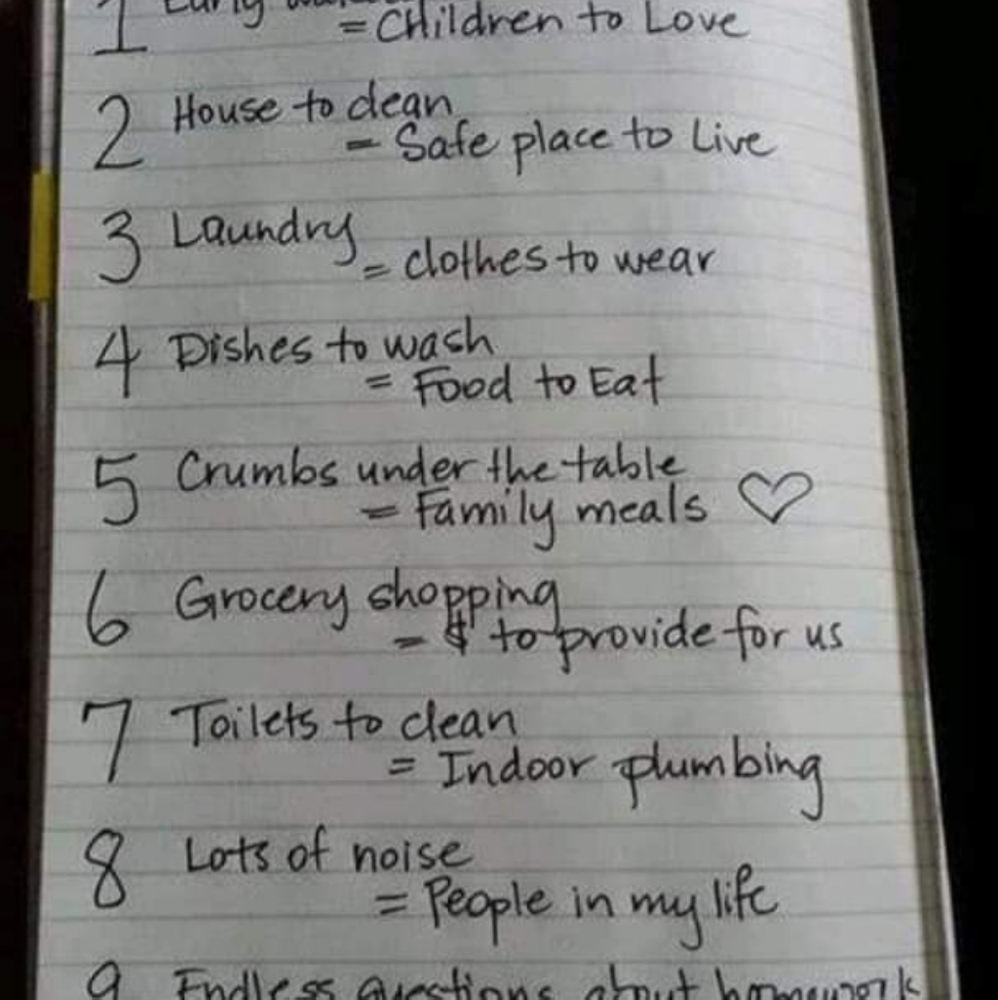 1 Early
= Children to Love
2 House to clean
= Safe place to Live
3 Laundry
= clothes to wear
4 Dishes to wash
= Food to Eat
5 Crumbs under the table
= Family meals
6 Grocery shopping
= $ to provide for us
7 Toilets to clean
= Indoor plumbing
8 Lots of noise
= People in my life
9 Endless questions about homework